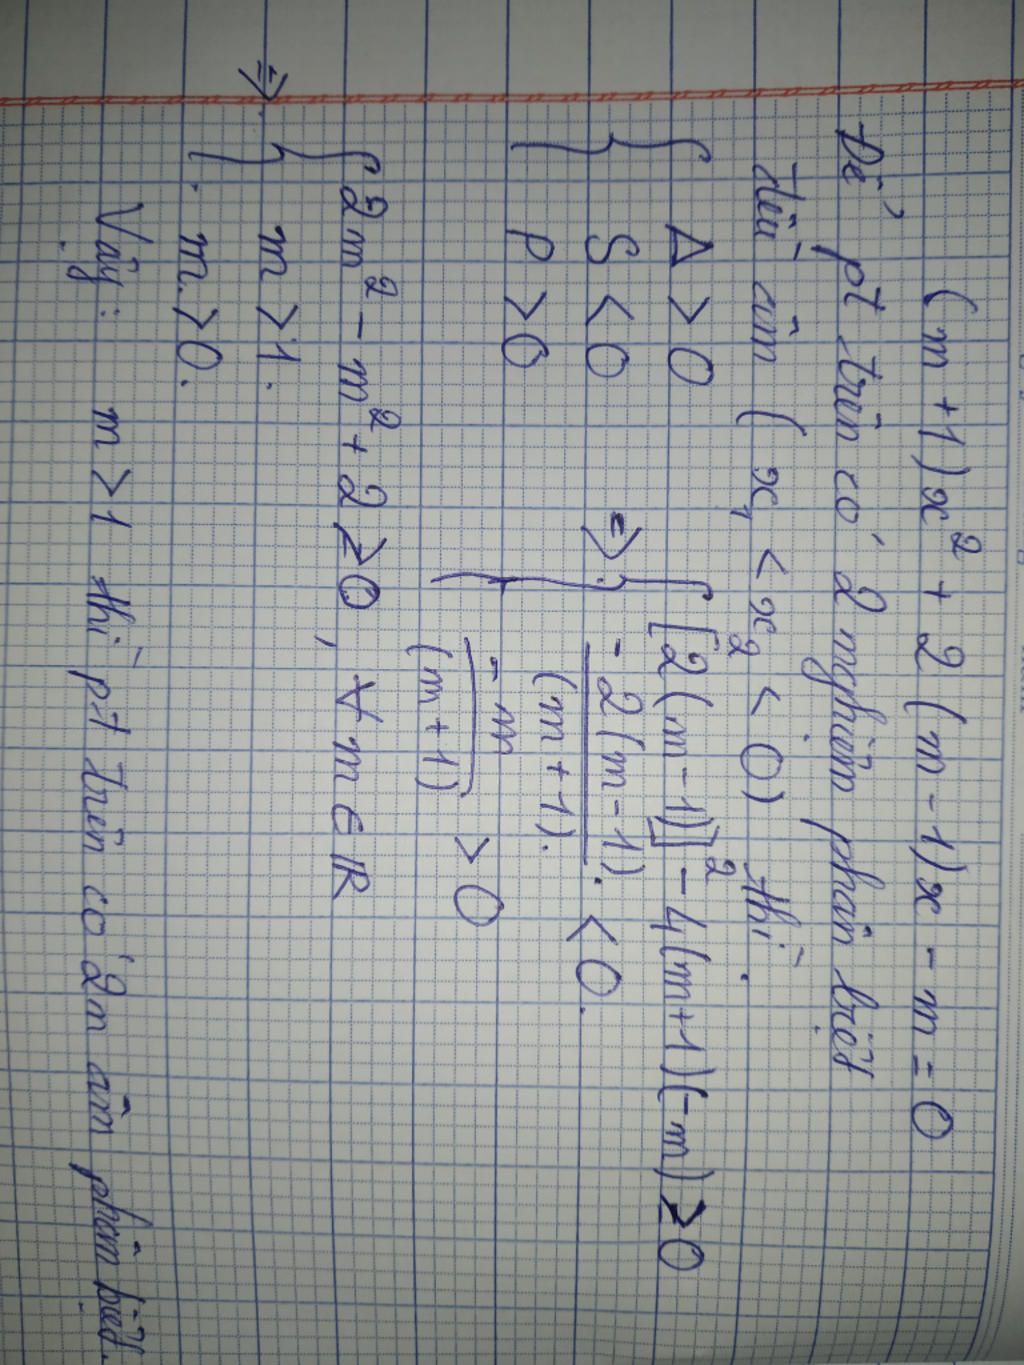 (m+1)x² + 2(m-1)x - m = 0
Để pt trên có 2 nghiệm phân biệt
đều âm (x₁ < x₂ < 0) thì
{ Δ > 0
S < 0
P > 0
=> { [2(m-1)]² - 4(m+1)(-m) ≥ 0
-2(m-1) / (m+1) < 0
-m / (m+1) > 0
=> { 2m² - m² + 2 ≥ 0, ∀ m ∈ ℝ
m > 1.
m > 0.
Vậy: m > 1 thì pt trên có 2n âm phân biệt.